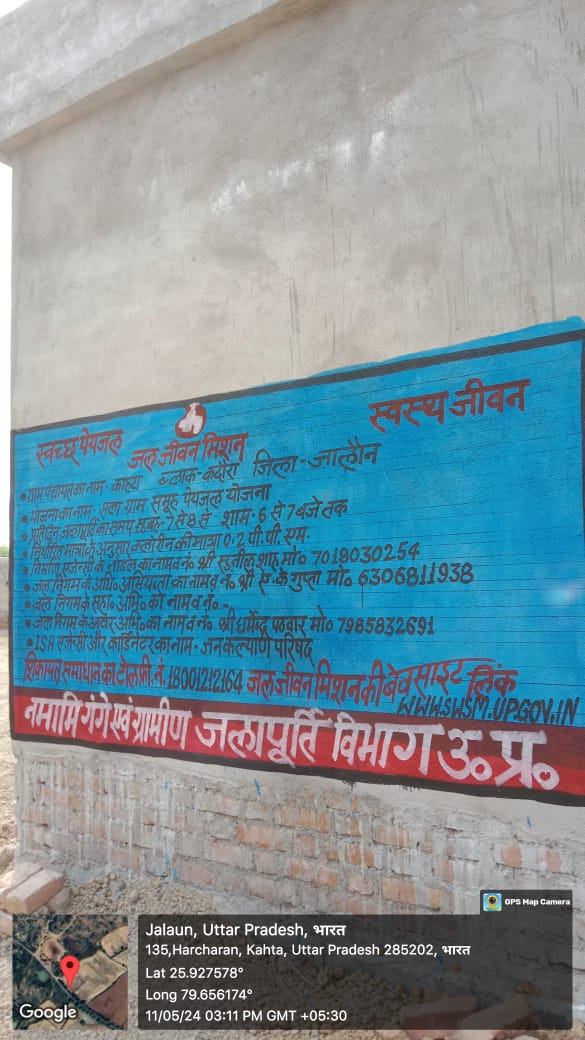 स्वच्छ पेयजल जल जीवन मिशन स्वस्थ जीवन
• ग्राम पंचायत का नाम - काहटा ब्लाक - कदौरा जिला - जालौन
• योजना का नाम, सला ग्राम समूह पेयजल योजना
• प्रतिदिन जलापूर्ति का समय सुबह - 7 से 8 से शाम - 6 से 7 बजे तक
• निर्धारित मात्रा के अनुसार क्लोरीन की मात्रा 0.2 पी.पी. एम.
• निर्माण एजेन्सी के नोडल का नाम व नं० श्री सुनील शाह मो० 7018030254
• जल निगम के अधि० अभियन्ता का नाम व नं० श्री ए. के गुप्ता मो० 6306811938
• जल निगम के सहा० अभि० को नाम व नं० -
• जल निगम के अवर अभि० का नाम व नं० श्री धर्मेन्द्र पठवार मो० 7985832691
• ISA एजेन्सी और कार्डिनेटर का नाम - जनकल्याणी परिषद्
शिकायत समाधान का टोल फ्री. नं. 18001212164 जल जीवन मिशन की बेवसाइट लिंक
WWW.SWSM.UP.GOV.IN
नमामि गंगे एवं ग्रामीण जलापूर्ति विभाग उ० प्र०
GPS Map Camera
Jalaun, Uttar Pradesh, भारत
135,Harcharan, Kahta, Uttar Pradesh 285202, भारत
Lat 25.927578°
Long 79.656174°
11/05/24 03:11 PM GMT +05:30
Google